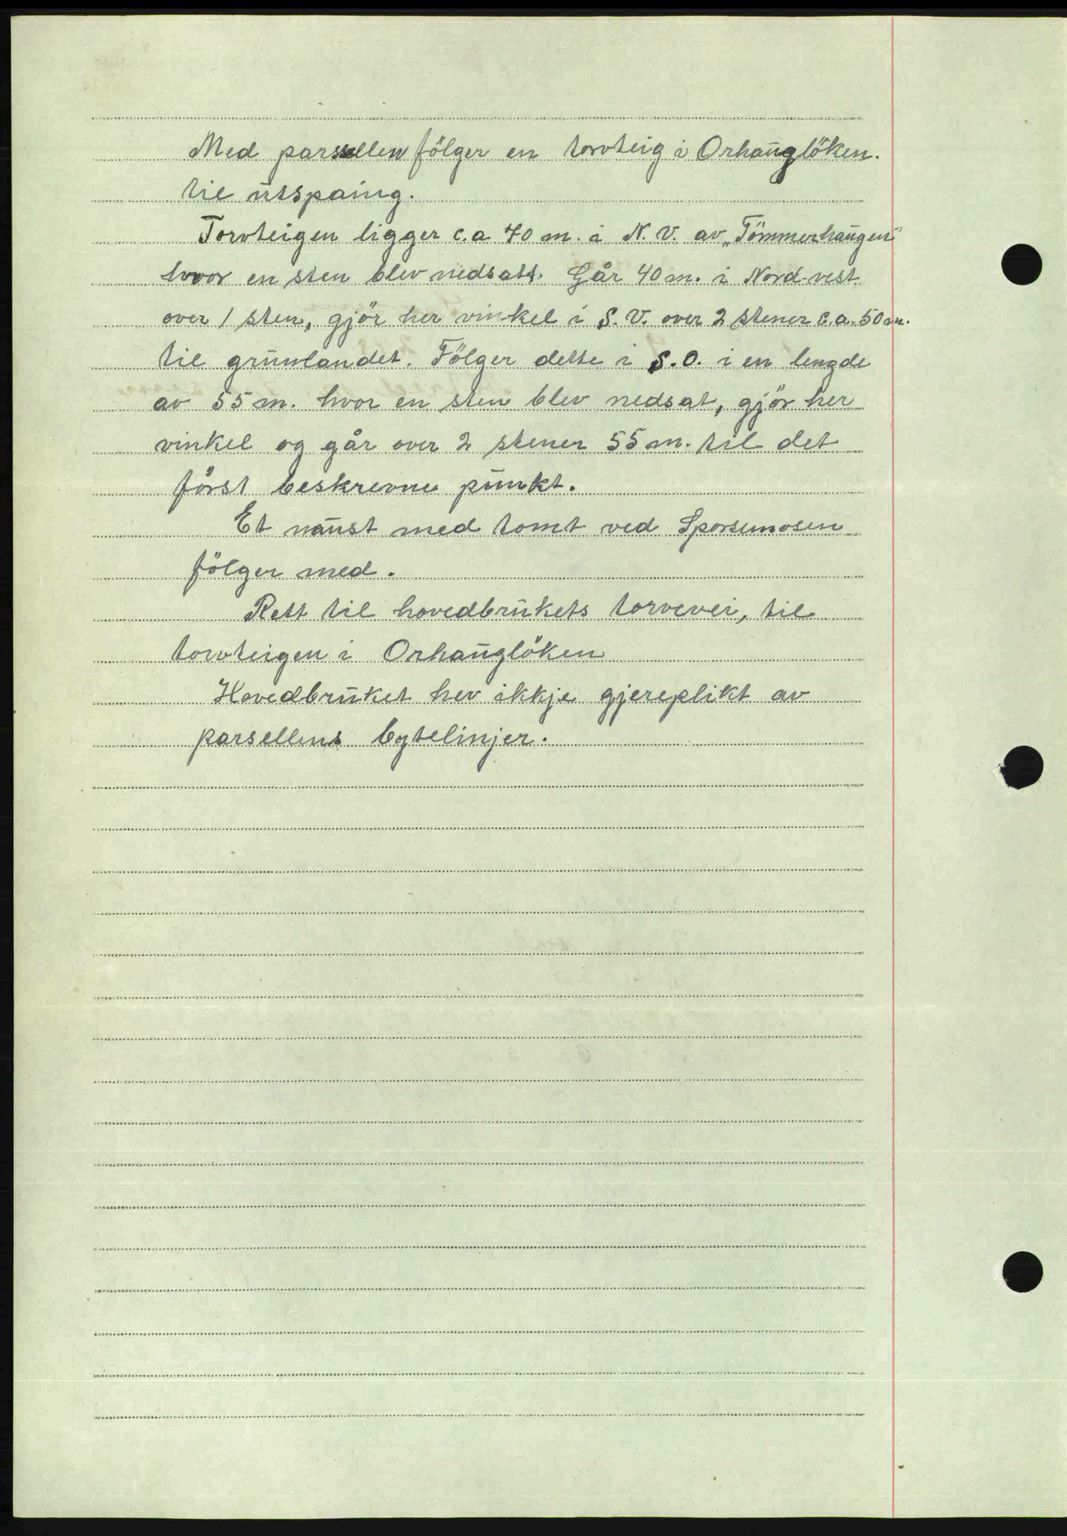 Med parsellen fölger en torvteig i Orhauglöken.
til utspaing.
Torvteigen ligger c.a 70 m. i N.V. av „Tömmerhaugen"
hvor en sten blev nedsatt. Går 40 m. i Nord-vest
over 1 sten, gjör her vinkel i S.V. over 2 stener c.a. 50 m.
til grunlandet. Fölger dette i S.O. i en lengde
av 55 m. hvor en sten blev nedsat, gjör her
vinkel og går over 2 stener 55 m. til det
först beskrevne punkt.
Et naust med tomt ved Sporsemosen
fölger med.
Rett til hovedbrukets torvevei, til
torvteigen i Orhauglöken
Hovedbruket hev ikkje gjereplikt av
parsellens bytelinjer.